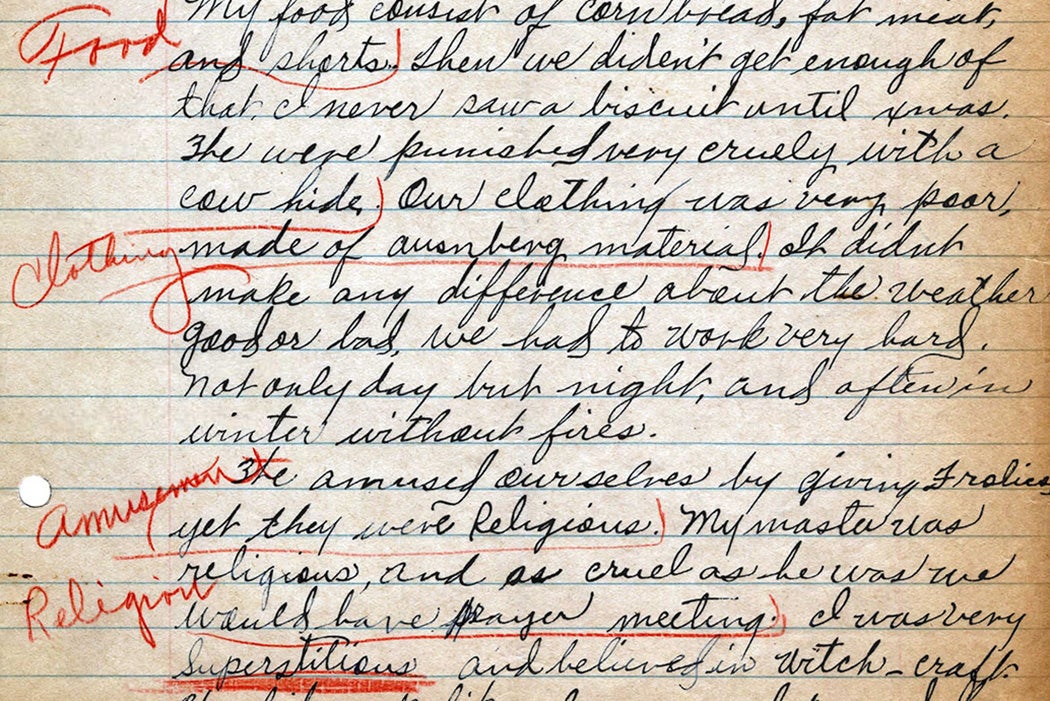 My food consist of corn bread, fat meat,
Food
and shorts. Then we diden't get enough of
that. I never saw a biscuit until xmas.
We were punished very cruely with a
cow hide. Our clothing was very poor,
Clothing
made of ausnberg material. It didnt
make any difference about the weather
good or bad, we had to work very hard.
not only day but night, and often in
winter without fires.
We amused ourselves by giving Frolics
Amusement
yet they were Religious. My master was
religious, and as cruel as he was we
Religion
would have prayer meeting. I was very
superstitious and believed in witch-craft.